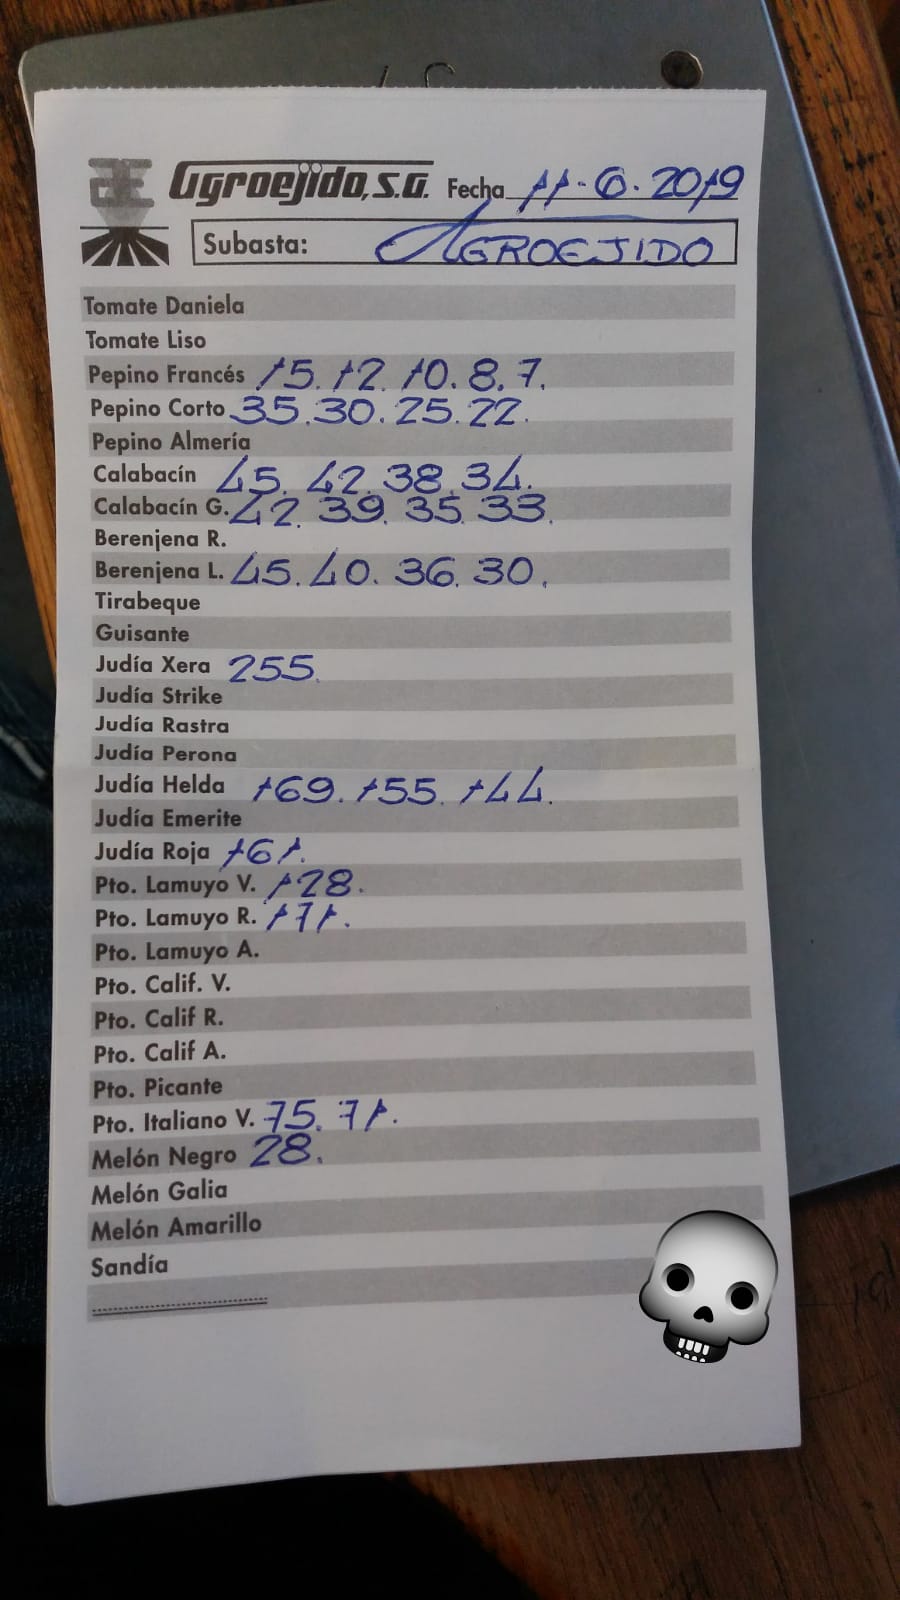 Agroejido, S.A. Fecha 11-6-2019
Subasta: AGROEJIDO
Tomate Daniela
Tomate Liso
Pepino Francés 15. 12. 10. 8. 7.
Pepino Corto 35. 30. 25. 22.
Pepino Almería
Calabacín 45. 42. 38. 34.
Calabacín G. 42. 39. 35. 33.
Berenjena R.
Berenjena L. 45. 40. 36. 30.
Tirabeque
Guisante
Judía Xera 255.
Judía Strike
Judía Rastra
Judía Perona
Judía Helda 169. 155. 144.
Judía Emerite
Judía Roja 161.
Pto. Lamuyo V. 128.
Pto. Lamuyo R. 171.
Pto. Lamuyo A.
Pto. Calif. V.
Pto. Calif R.
Pto. Calif A.
Pto. Picante
Pto. Italiano V. 75. 71.
Melón Negro 28.
Melón Galia
Melón Amarillo
Sandía